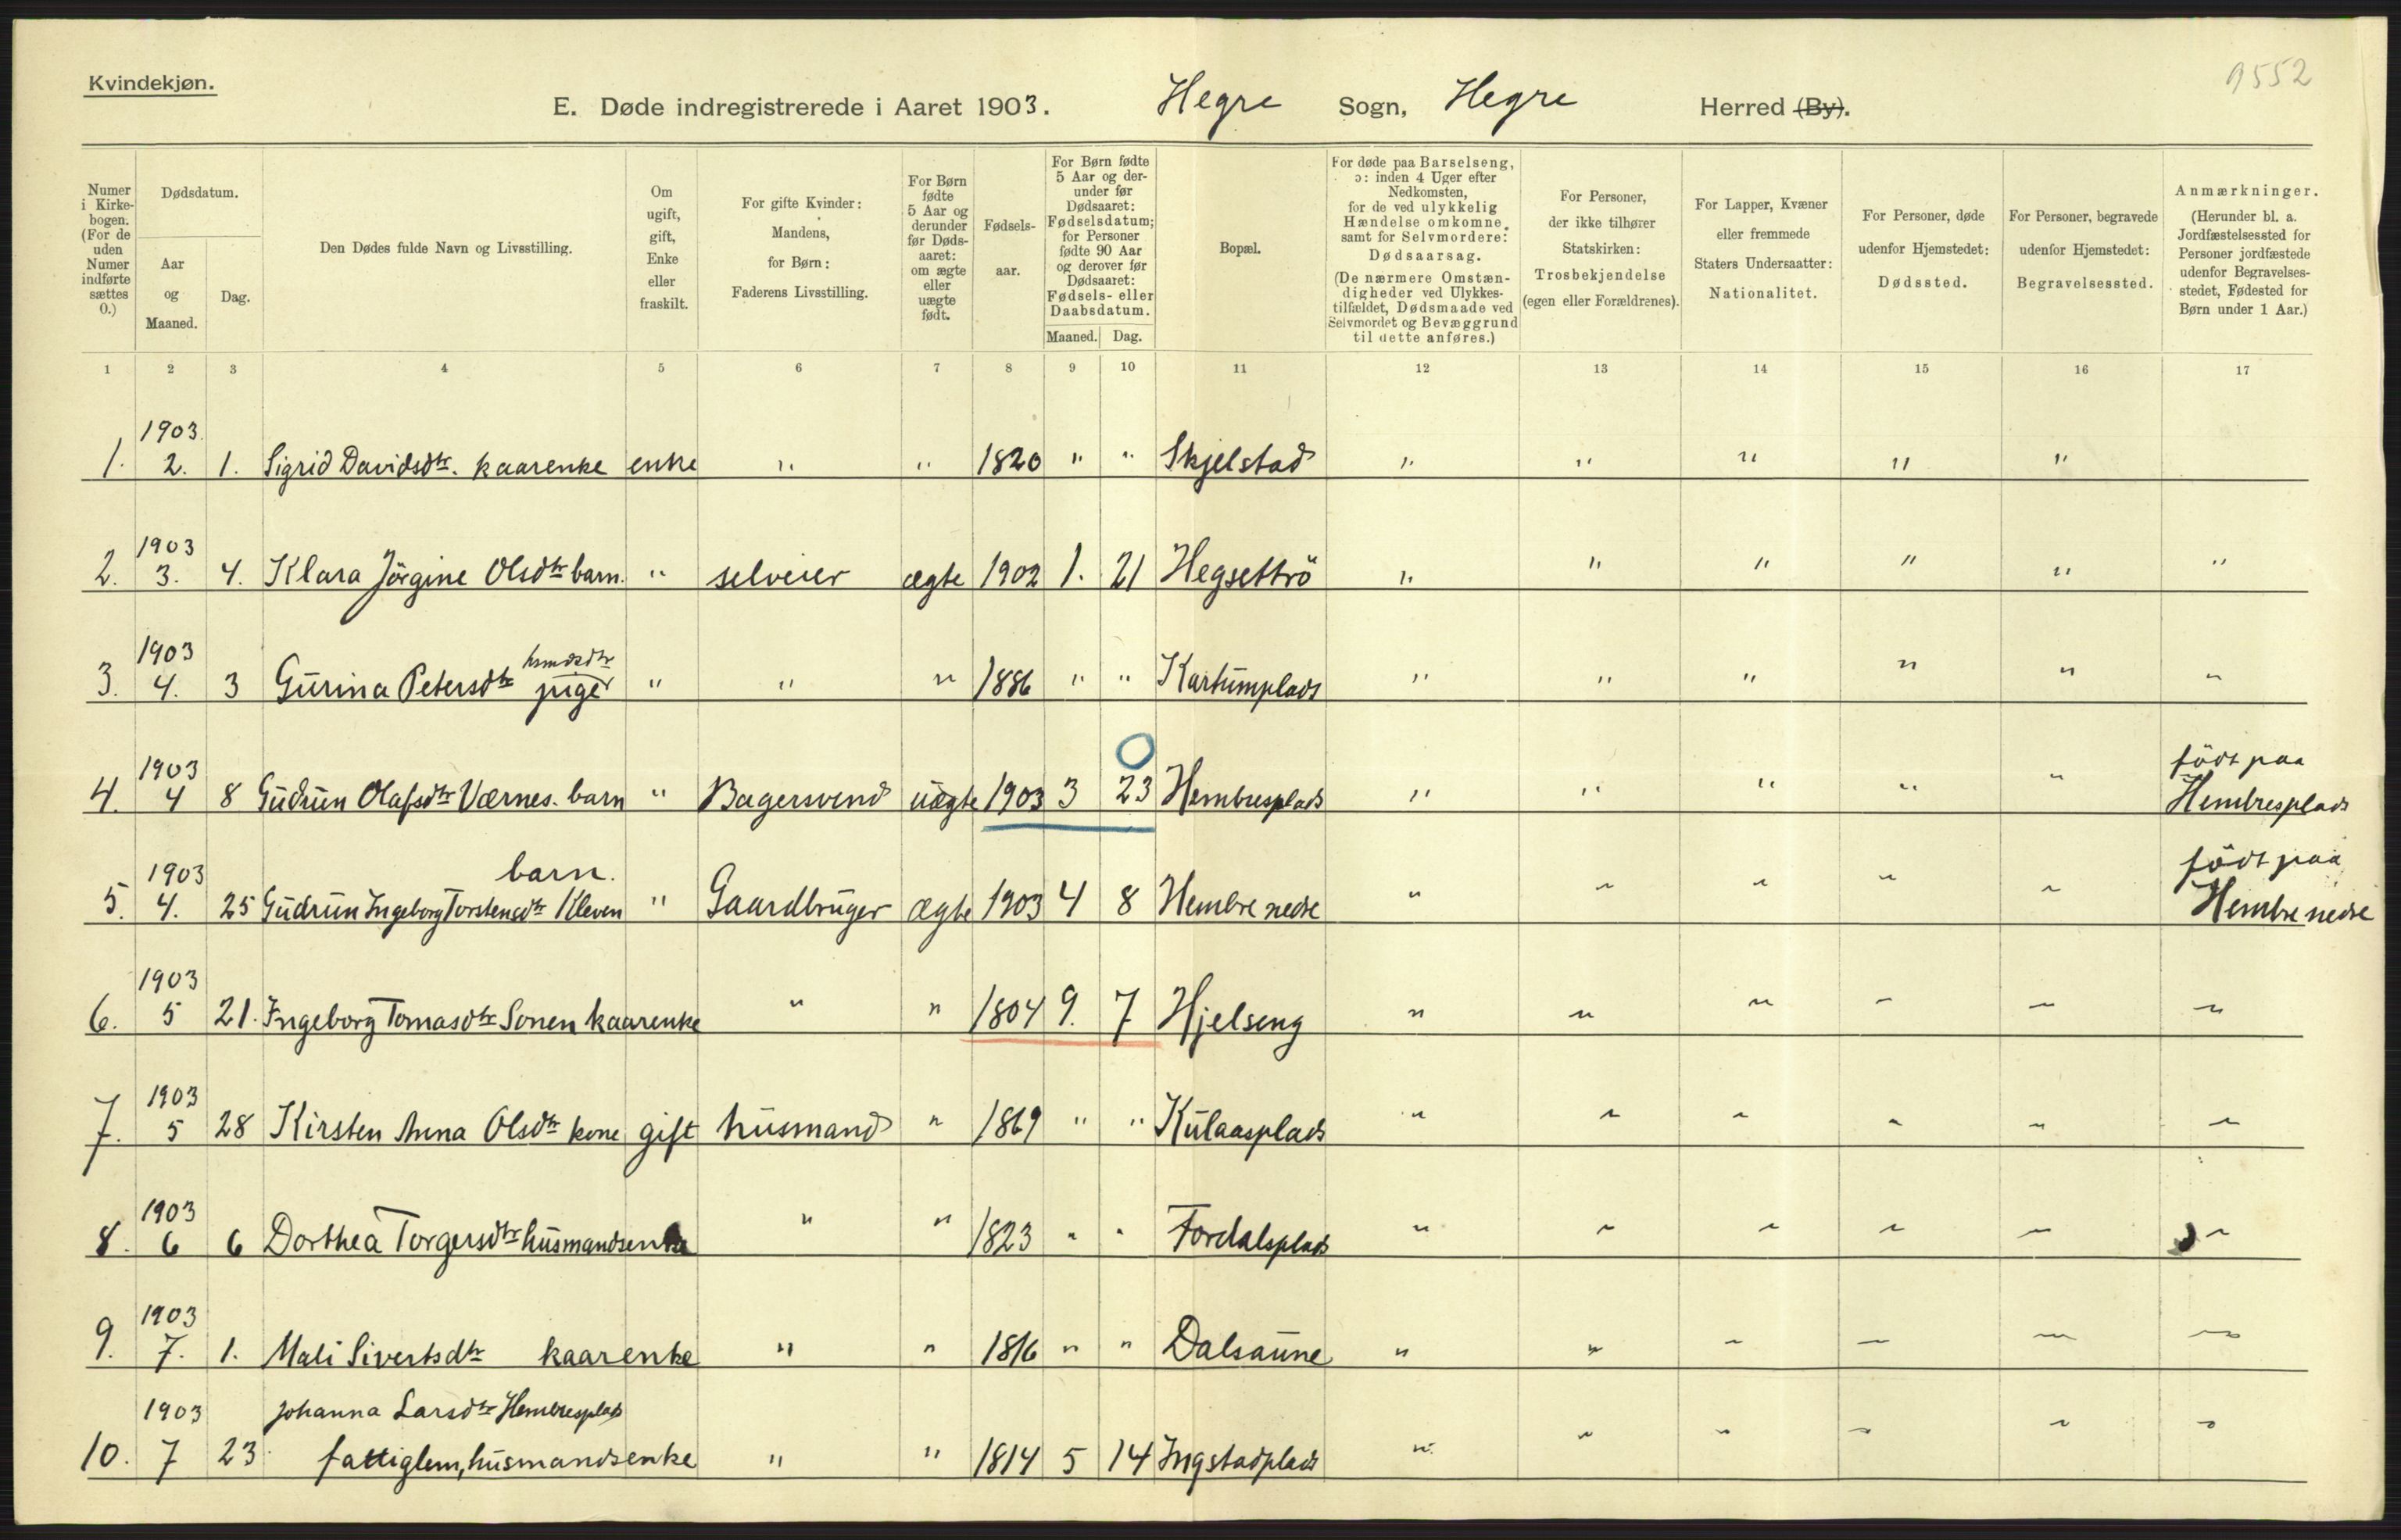 Kvindekjøn.
9552
E. Døde indregistrerede i Aaret 1903. Hegre Sogn, Hegre Herred (By).
Numer i Kirkebogen. (For de uden Numer indførte sættes 0.)
Dødsdatum.
Aar og Maaned.
Dag.
Den Dødes fulde Navn og Livsstilling.
Om ugift, gift, Enke eller fraskilt.
For gifte Kvinder: Mandens, for Børn: Faderens Livsstilling.
For Børn fødte 5 Aar og derunder før Dødsaaret: om ægte eller uægte født.
Fødselsaar.
For Børn fødte 5 Aar og derunder før Dødsaaret: Fødselsdatum; for Personer fødte 90 Aar og derover før Dødsaaret: Fødsels- eller Daabsdatum.
Maaned. Dag.
Bopæl.
For døde paa Barselseng, ɔ: inden 4 Uger efter Nedkomsten, for de ved ulykkelig Hændelse omkomne, samt for Selvmordere: Dødsaarsag. (De nærmere Omstændigheder ved Ulykkestilfældet, Dødsmaade ved Selvmordet og Bevæggrund til dette anføres.)
For Personer, der ikke tilhører Statskirken: Trosbekjendelse (egen eller Forældrenes).
For Lapper, Kvæner eller fremmede Staters Undersaatter: Nationalitet.
For Personer, døde udenfor Hjemstedet: Dødssted.
For Personer, begravede udenfor Hjemstedet: Begravelsessted.
Anmærkninger. (Herunder bl. a. Jordfæstelsessted for Personer jordfæstede udenfor Begravelsesstedet, Fødested for Børn under 1 Aar.)
1 2 3 4 5 6 7 8 9 10 11 12 13 14 15 16 17
1903
1. 2. 1. Sigrid Davidsdtr. kaarenke enke " " 1820 " " Skjelstad " " " " "
1903
2. 3. 4. Klara Jörgine Olsdtr barn. " selveier ægte 1902 1. 21 Hegsettrö " " " " " "
1903 hsmdsdtr
3. 4. 3 Gurina Petersdtr pige " " " 1886 " " Kartumplads " " " " " "
1903 födt paa
4. 4 8 Gudrun Olafsdtr Værnes. barn " Bagersvend uægte 1903 3 23 Hembresplads " " " " " Hembresplads
1903 barn. födt paa
5. 4. 25 Gudrun Ingeborg Torstensdtr Kleven " Gaardbruger ægte 1903 4 8 Hembre nedre " " " " " Hembre nedre
1903
6. 5 21. Ingeborg Tomasdtr Sonen kaarenke " " 1804 9. 7 Hjelseng " " " " " "
1903
7. 5 28 Kirsten Anna Olsdtr kone gift husmand " 1869 " " Kulaasplads " " " " " "
1903
8. 6 6 Dorthea Torgersdtr husmandsenke " " 1823 " " Fordalsplads " " " " " "
1903
9. 7. 1. Mali Sivertsdtr kaarenke " " 1816 " " Dalsaune " " " " " "
1903 Johanna Larsdtr Hembresplads
10. 7 23. fattiglem, husmandsenke " " 1814 5 14 Ingstadplads " " " " " "